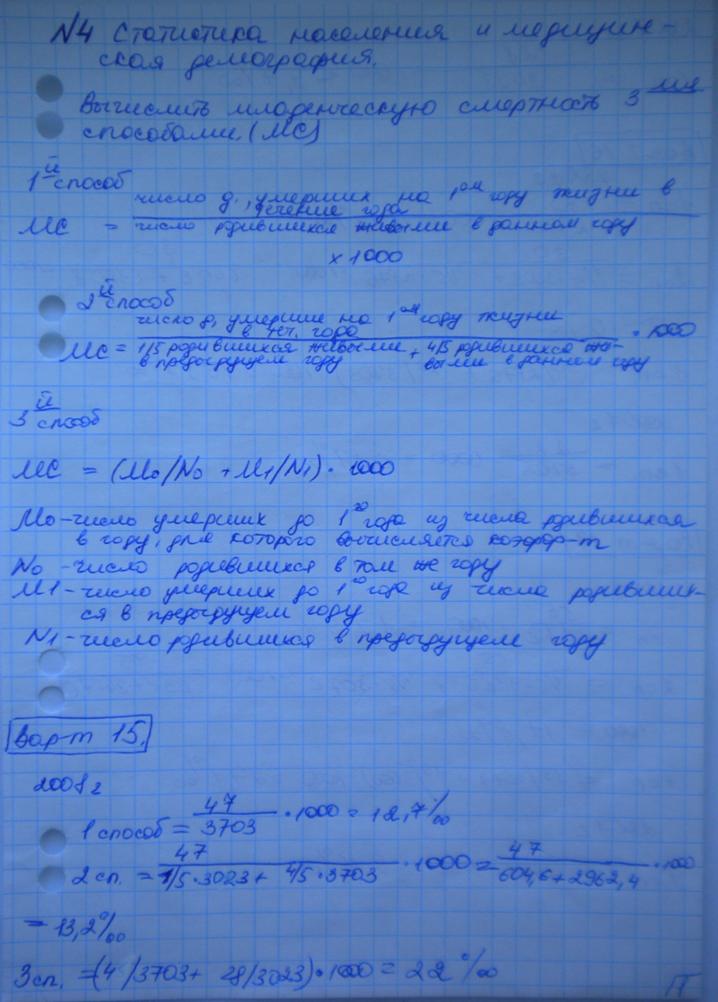 №4 Статистика населения и медицин-
ская демография.
Вычислить младенческую смертность 3мя
способами. (МС)
1й способ
число д., умерших на 1ом году жизни в
течение года
МС = число родившихся живыми в данном году
х 1000
2й способ
число д, умерших на 1ом году жизни
в теч. года
МС = 1/5 родившихся живыми + 4/5 родившихся жи- · 1000
в предыдущем году выми в данном году
3й способ
МС = (М0/N0 + М1/N1) · 1000
М0 - число умерших до 1го года из числа родившихся
в году, для которого вычисляется коэфф-т
N0 - число родившихся в том же году
М1 - число умерших до 1го года из числа родивших-
ся в предыдущем году
N1 - число родившихся в предыдущем году
Вар-т 15.
2008 г
1 способ = 47/3703 · 1000 = 12,7‰
2 сп. = 47/(1/5·3023 + 4/5·3703) · 1000 = 47/(604,6+2962,4) · 1000
= 13,2‰
3 сп. = (4 /3703+ /3023) · 1000 = 22 ‰